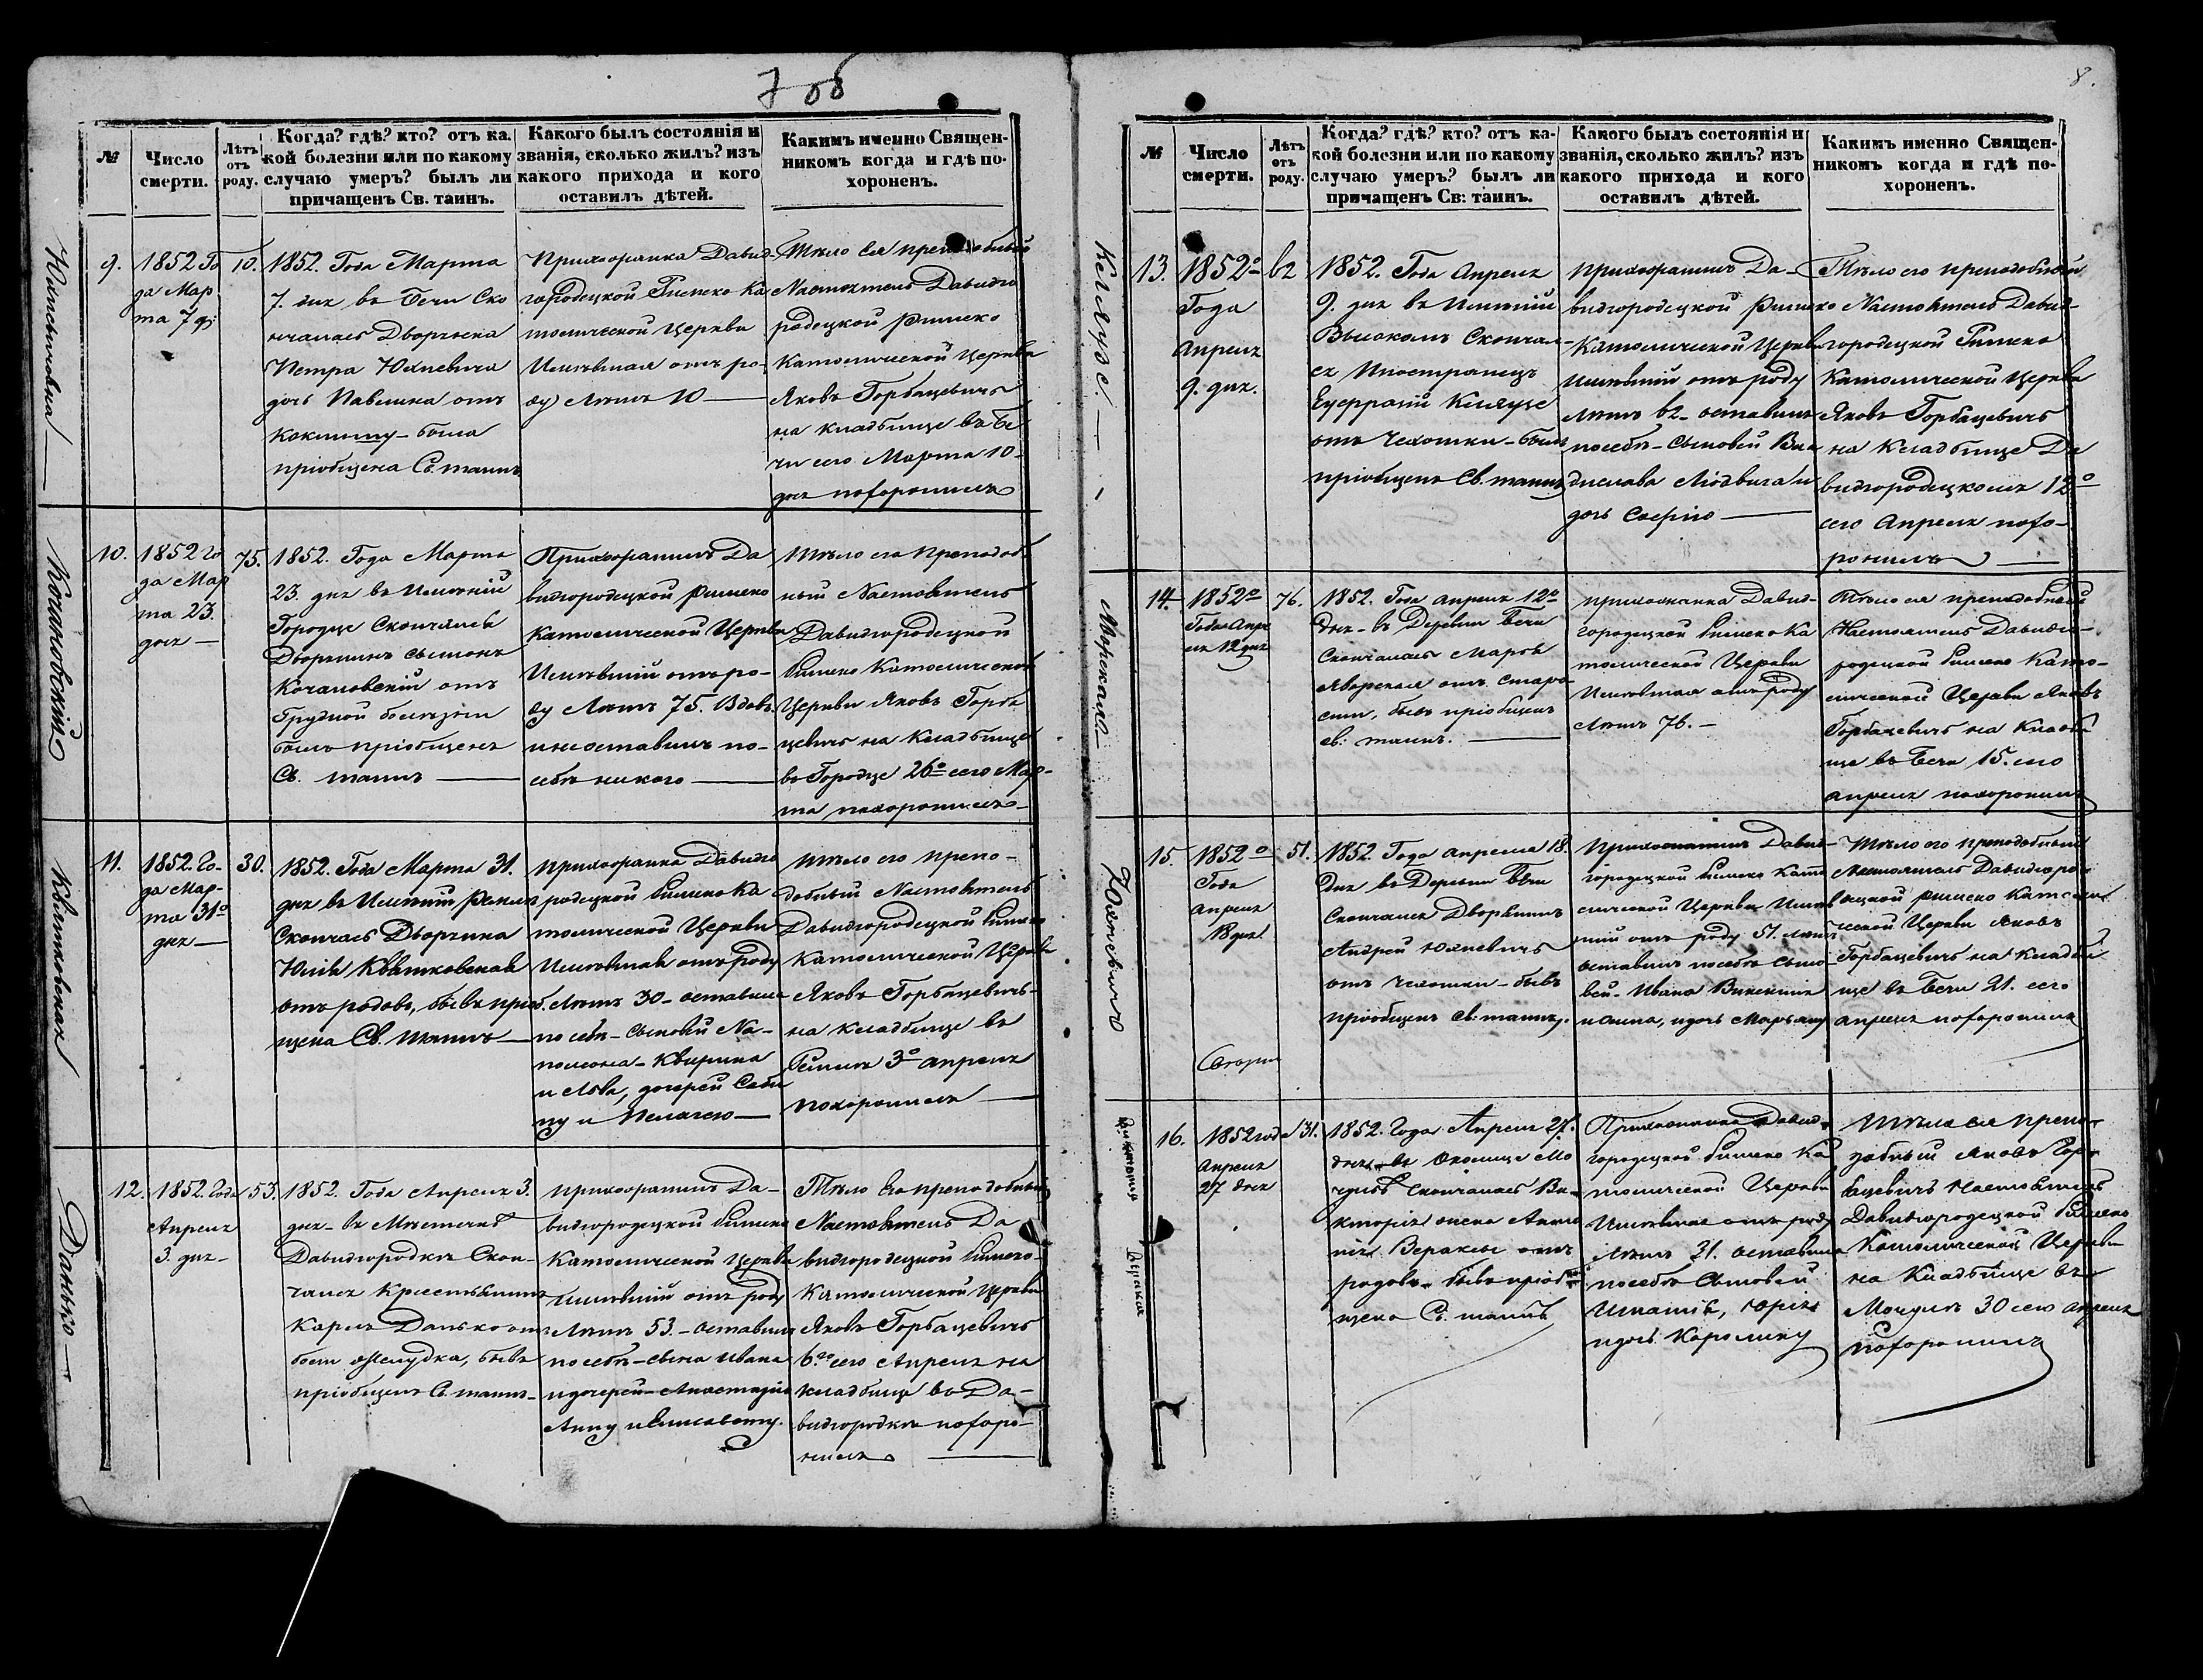 7 об
№
Число
смерти.
Лѣтъ
отъ
роду.
Когда? гдѣ? кто? отъ ка-
кой болезни или по какому
случаю умеръ? былъ ли
причащенъ Св. таинъ.
Какого былъ состоянія и
званія, сколько жилъ? изъ
какого прихода и кого
оставилъ дѣтей.
Каким именно Священ-
никомъ когда и гдѣ по-
хороненъ.
9.
1852 Го
да Мар
та 7 д:
10.
1852. Года Марта
7. дня въ Бечи Ско
нчалась Дворянка
Петра Юхневича
дочь Павлина отъ
коклюшу - была
пріобщена Св. таинъ
Прихожанка Давид-
городецкой Римско Ка
толической Церкви
Имѣвшая отъ ро-
ду Лѣтъ 10 —
Тѣло ея преподобный
Настоятель Давидго
родецкой Римско
Католической Церкви
Яковъ Горбацевичъ
на кладбище въ Бе
чи сего Марта 10-
дня похоронилъ
Кочановскій
10.
1852 Го
да Мар
та 23.
дня —
75.
1852. Года Марта
23. дня въ Имѣніи
Городце Скончался
Дворянинъ Сымонъ
Кочановскій отъ
Грудной болѣзни
былъ пріобщенъ
Св. таинъ —
Прихожанинъ Да
видгородецкой Римско
Католической Церкви
Имѣвшій отъ ро-
ду Лѣтъ 75. Вдовъ.
и не оставилъ по-
себѣ никого —
Тѣло его Преподоб
ный Настоятель
Давидгородецкой
Римско Католической
Церкви Яковъ Горба
цевичъ на Кладбище
въ Городце 26º сего Мар-
та похоронилъ-
Квятковская
11.
1852. Го-
да Мар-
та 31º
дня —
30.
1852. Года Марта 31.
дня въ Имѣніи
Скончалась Дворянка
Юлія Квятковская
отъ родовъ, бывъ пріоб
щена Св. таинъ —
Прихожанка Давидго
родецкой Римско Ка
толической Церкви
Имѣвшая отъ роду
Лѣтъ 30 - оставила
по себѣ - сыновей На-
полеона - Квирина
и Льва, дочерей Саби
ну и Пелагею —
Тѣло его препо-
добный Настоятель
Давидгородецкой Римско
Католической Церкви
Яковъ Горбацевичъ-
на кладбище въ
3º апреля
похоронилъ —
Данько —
12.
1852. Года
Апреля
3. дня-
53.
1852. Года Апреля 3.
дня - въ Мѣстечкѣ
Давидгородкѣ Скон-
чался Крестьянинъ
Карлъ Данько отъ
боли желудка, бывъ
пріобщенъ Св. таинъ-
Прихожанинъ Да-
видгородецкой Римско
Католической Церкви
Имѣвшій отъ роду
Лѣтъ 53. - оставилъ
по себѣ - сына Ивана
и дочерей - Анастазію
Анну и Елисавету.
Тѣло Его преподобный
Настоятель Да
видгородецкой Римско-
Католической Церкви
Яковъ Горбацевичъ
6.го сего Апреля на
кладбище въ Да-
видгородкѣ похоро-
нилъ —
8.
№
Число
смерти.
Лѣтъ
отъ
роду.
Когда? гдѣ? кто? отъ ка-
кой болезни или по какому
случаю умеръ? былъ ли
причащенъ Св: таинъ.
Какого былъ состоянія и
званія, сколько жилъ? изъ
какого прихода и кого
оставилъ дѣтей.
Каким именно Священ-
никомъ когда и гдѣ по-
хороненъ.
13.
1852º
Года
Апреля
9. дня.
62
1852. Года Апреля
9. дня въ Имѣніи
Высокомъ Скончал-
ся Иностранецъ
отъ Чахотки - былъ
пріобщенъ Св. таинъ
Прихожанинъ Да-
видгородецкой Римско
Католической Церкви
Имѣвшій отъ роду
Лѣтъ 62 - оставилъ
по себѣ - сыновей Вла
дислава Людвига и
дочь Софію —
Тѣло его преподобный
Настоятель Давид-
городецкой Римско
Католической Церкви
Яковъ Горбацевичъ
на Кладбище Да
видгородецкомъ 12º
сего Апреля похо-
ронилъ —
14.
1852º
Года Апре
ля 12 дня
76.
1852. Года Апреля 12º
дня - въ Деревни Бечи
Скончалась Марья
отъ старо-
сти, бывъ пріобщена
св: таинъ. —
Прихожанка Давид-
городецкой Римско Ка
толической Церкви
Имѣвшая отъ роду
Лѣтъ 76. -
Тѣло ея преподобный
Настоятель Давидго-
родецкой Римско Като-
лической Церкви Яковъ
Горбацевичъ на Кладби
ще въ Бечи 15. сего
Апреля похоронилъ
Юхневичъ
15.
1852º
Года
Апреля
18 дня.
51.
1852. Года Апреля 18.
Дня въ Деревни Бечи
Скончался Дворянинъ
Андрей Юхневичъ
отъ Чахотки - бывъ
пріобщенъ Св: таинъ.
Прихожанинъ Давид-
городецкой Римско Като
лической Церкви Имѣв
шій отъ роду 51. Лѣтъ
оставилъ по себѣ сыно-
вей - Ивана Викентія
и Осипа, и дочь Марьяну
Тѣло его преподобный
Настоятель Давидгоро-
децкой Римско Католи
ческой Церкви Яковъ
Горбацевичъ на Кладби
ще въ Бечи 21. сего
Апреля похоронилъ
16.
1852 года
Апреля
27 дня
31.
1852. Года Апреля 27.
дня - въ Околице Мо
чулѣ Скончалась Ви-
кторія жена Анто
нія Вераксы отъ
родовъ - бывъ пріоб
щена Св. таинъ
Прихожанка Давид-
городецкой Римско Ка
толической Церкви
Имѣвшая отъ роду
Лѣтъ 31. оставила
по себѣ Сыновей
Игнатія, Юрія
и дочь Каролину
Тѣло ея препо-
добный Яковъ Гор-
бацевичъ Настоятель
Давидгородецкой Римско
Католической Церкви
на Кладбище въ
Мочулѣ 30 сего Апреля
похоронилъ